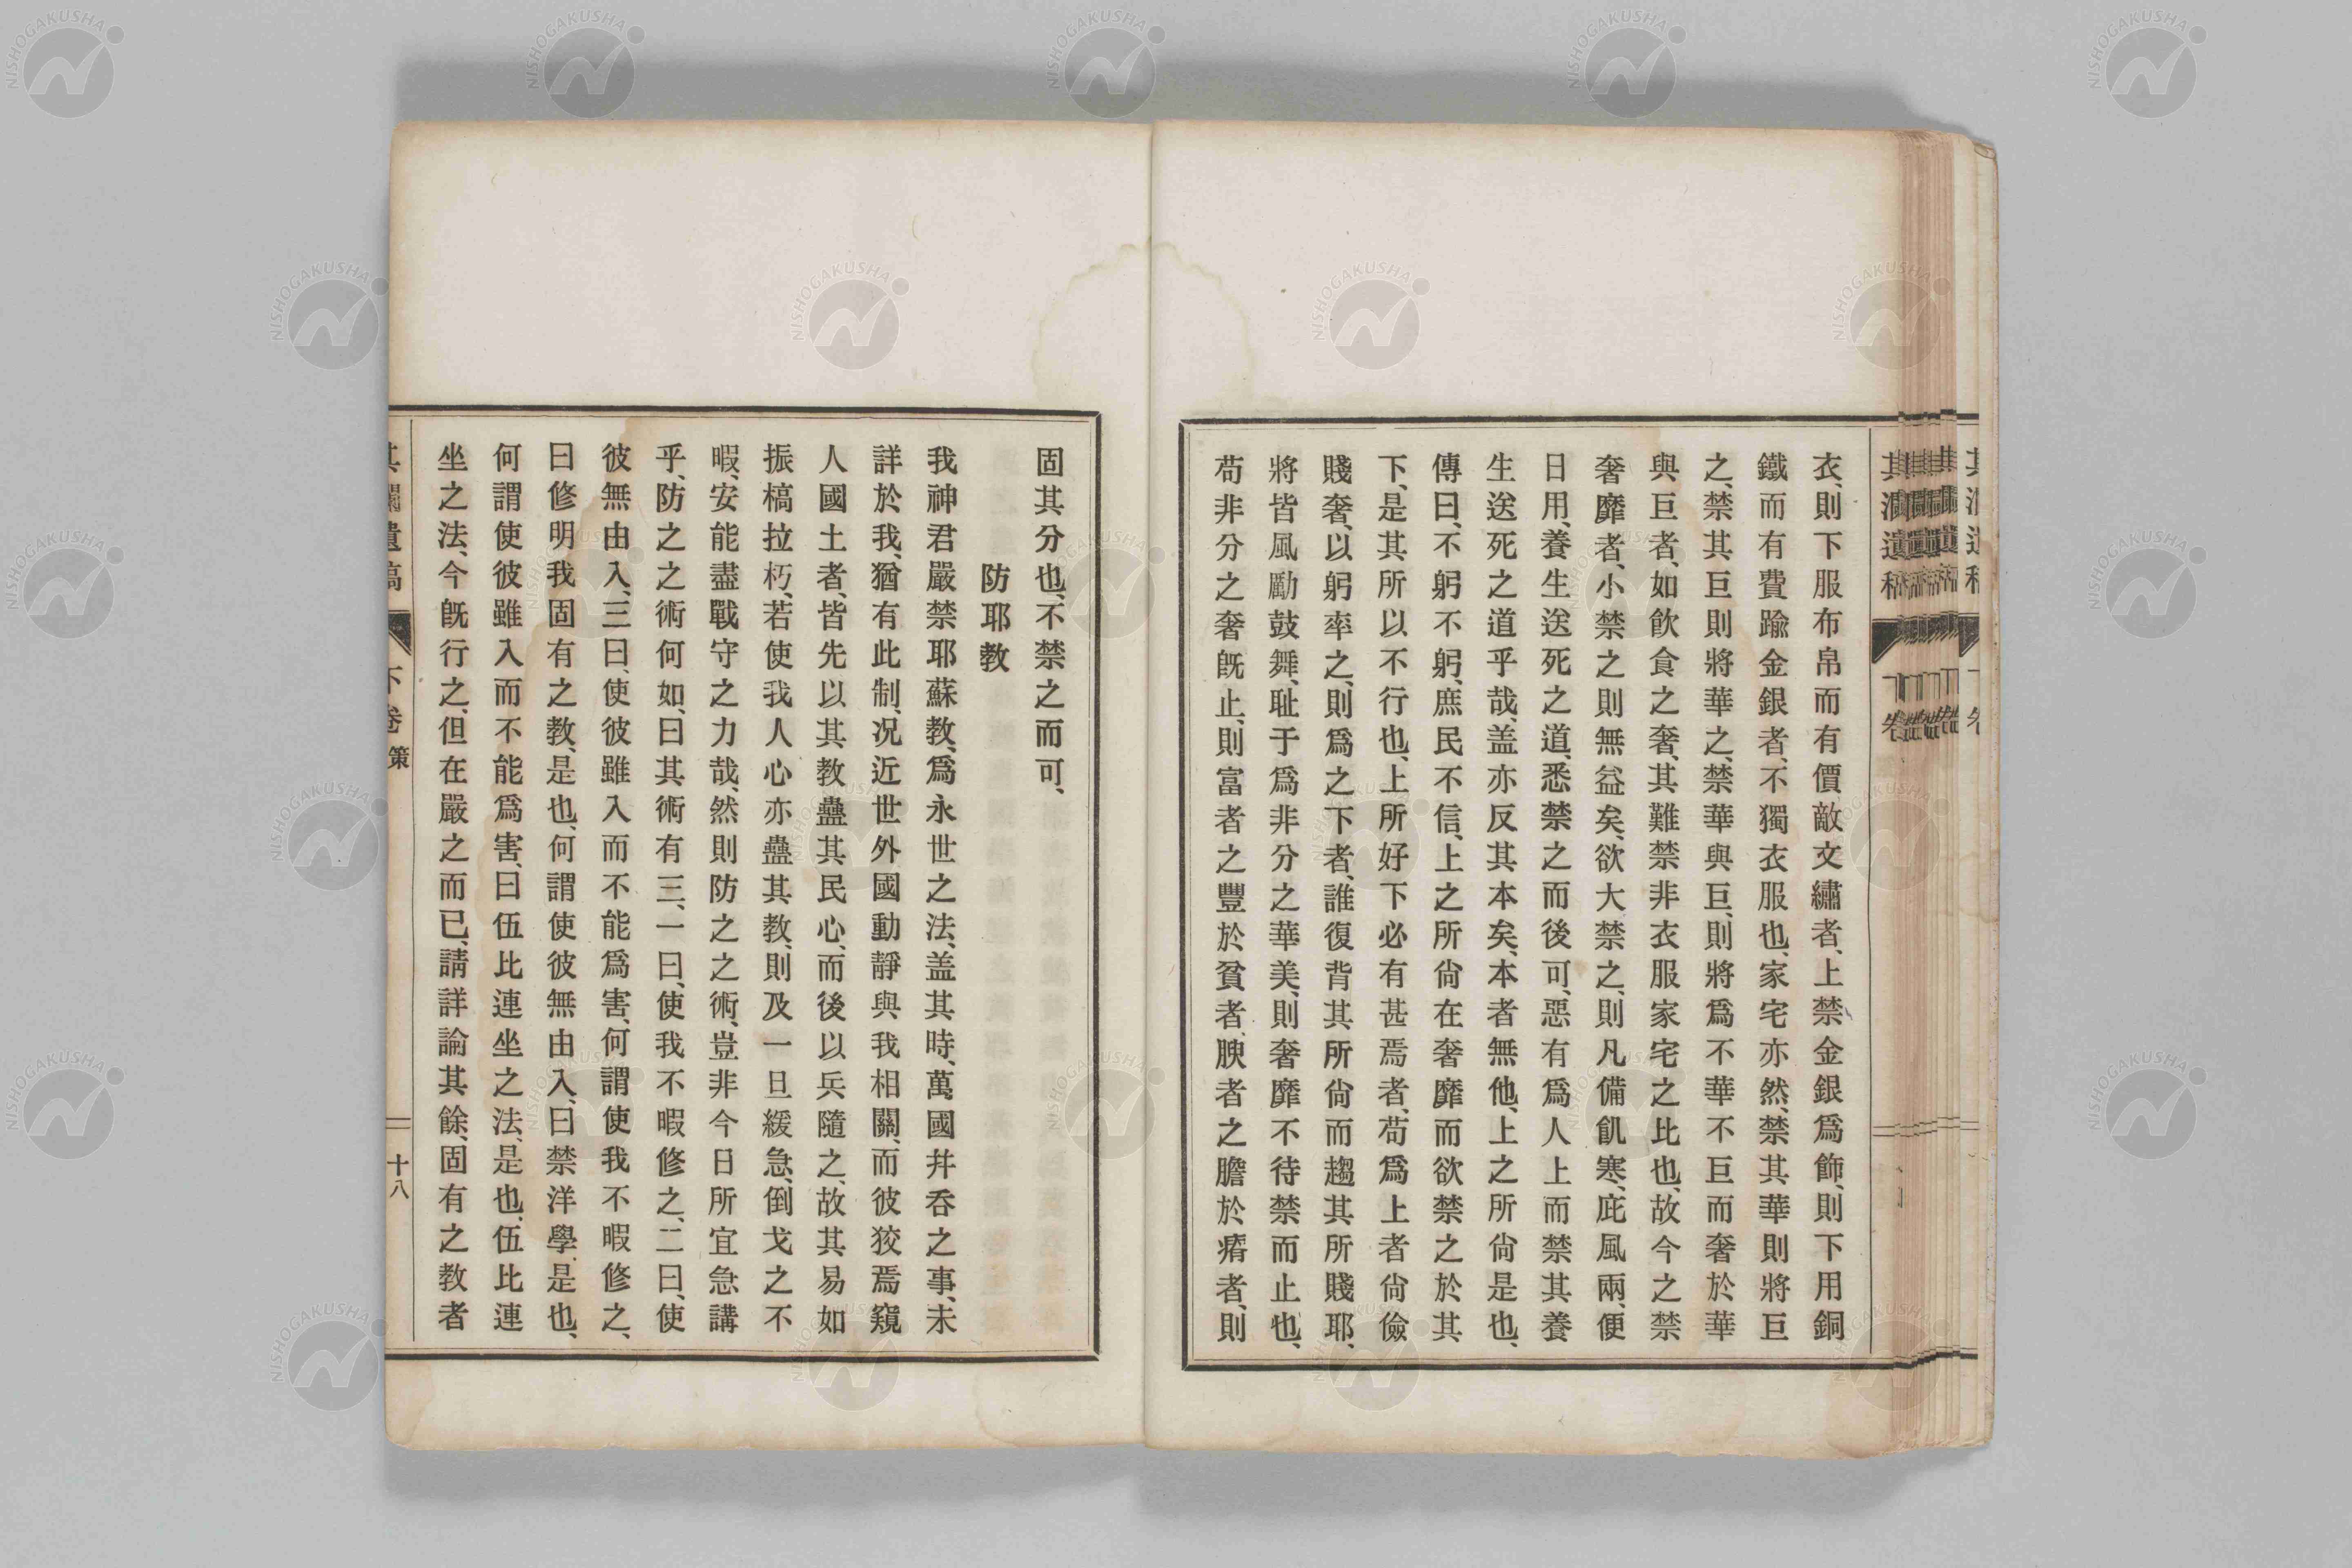 衣、則下服布帛而有價敵文繡者、上禁金銀爲飾、則下用銅
鐵而有費踰金銀者、不獨衣服也、家宅亦然、禁其華則將巨
之、禁其巨則將華之、禁華與巨、則將爲不華不巨而奢於華
與巨者、如飮食之奢、其難禁非衣服家宅之比也、故今之禁
奢靡者、小禁之則無益矣、欲大禁之、則凡備飢寒、庇風雨、便
日用、養生送死之道、悉禁之而後可、惡有爲人上而禁其養
生送死之道乎哉、盖亦反其本矣、本者無他、上之所尙是也、
傳曰、不躬不躬、庶民不信、上之所尙在奢靡而欲禁之於其
下、是其所以不行也、上所好下必有甚焉者、苟爲上者尙儉
賤奢、以躬率之、則爲之下者、誰復背其所尙而趨其所賤耶、
將皆風勵鼓舞、耻于爲非分之華美、則奢靡不待禁而止也、
苟非分之奢旣止、則富者之豐於貧者、腴者之膽於瘠者、則
固其分也、不禁之而可、
防耶教
我神君嚴禁耶蘇教、爲永世之法、盖其時、萬國幷呑之事、未
詳於我、猶有此制、况近世外國動靜與我相關、而彼狡焉窺
人國土者、皆先以其教蠱其民心、而後以兵隨之、故其易如
振槁拉朽、若使我人心亦蠱其教、則及一旦緩急、倒戈之不
暇、安能盡戰守之力哉、然則防之之術、豈非今日所宜急講
乎、防之之術何如、曰其術有三、一曰、使我不暇修之、二曰、使
彼無由入、三曰、使彼雖入而不能爲害、何謂使我不暇修之、
曰修明我固有之教、是也、何謂使彼無由入、曰禁洋學、是也、
何謂使彼雖入而不能爲害、曰伍比連坐之法、是也、伍比連
坐之法、今旣行之、但在嚴之而已、請詳論其餘、固有之教者
遺稿 下卷 策 十八
NISHOGAKUSHA